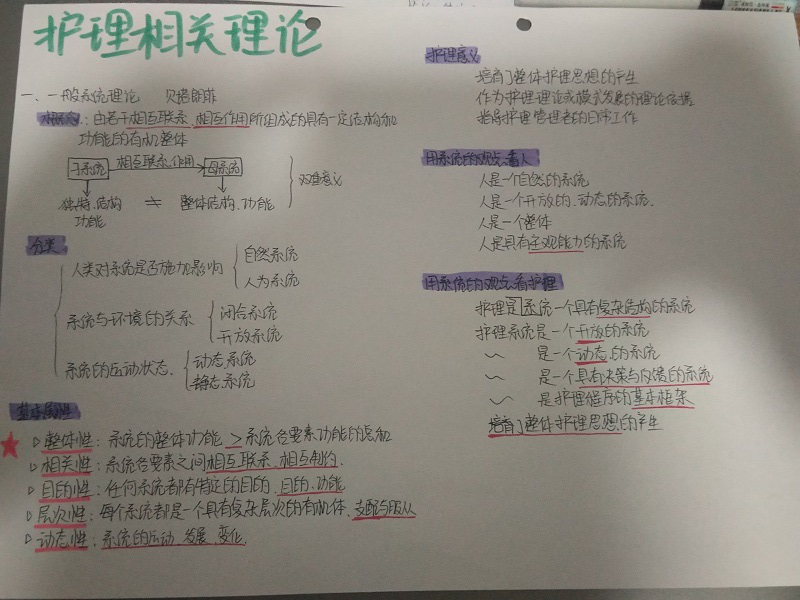 护理相关理论
一、一般系统理论 贝塔朗菲
概念:由若干相互联系、相互作用所组成的具有一定结构和
功能的有机整体
子系统 相互联系、作用 母系统
独特、结构 ≠ 整体结构、功能
功能
双重意义
分类
人类对系统是否施加影响
自然系统
人为系统
系统与环境的关系
闭合系统
开放系统
系统的运动状态
动态系统
静态系统
基本属性
整体性:系统的整体功能 > 系统各要素功能的总和
相关性:系统各要素之间相互联系、相互制约.
目的性:任何系统都有特定的目的、目的、功能
层次性:每个系统都是一个具有复杂层次的有机体、支配与服从
动态性:系统的运动、发展、变化.
护理意义
培育了整体护理思想的产生
作为护理理论或模式发展的理论依据
指导护理管理者的日常工作
用系统的观点看人
人是一个自然的系统
人是一个开放的、动态的系统.
人是一个整体
人是具有主观能力的系统
用系统的观点看护理
护理是系统一个具有复杂结构的系统
护理系统是一个开放的系统
~ 是一个动态的系统
~ 是一个具有决策与反馈的系统
~ 是护理程序的基本框架
培育了整体护理思想的产生